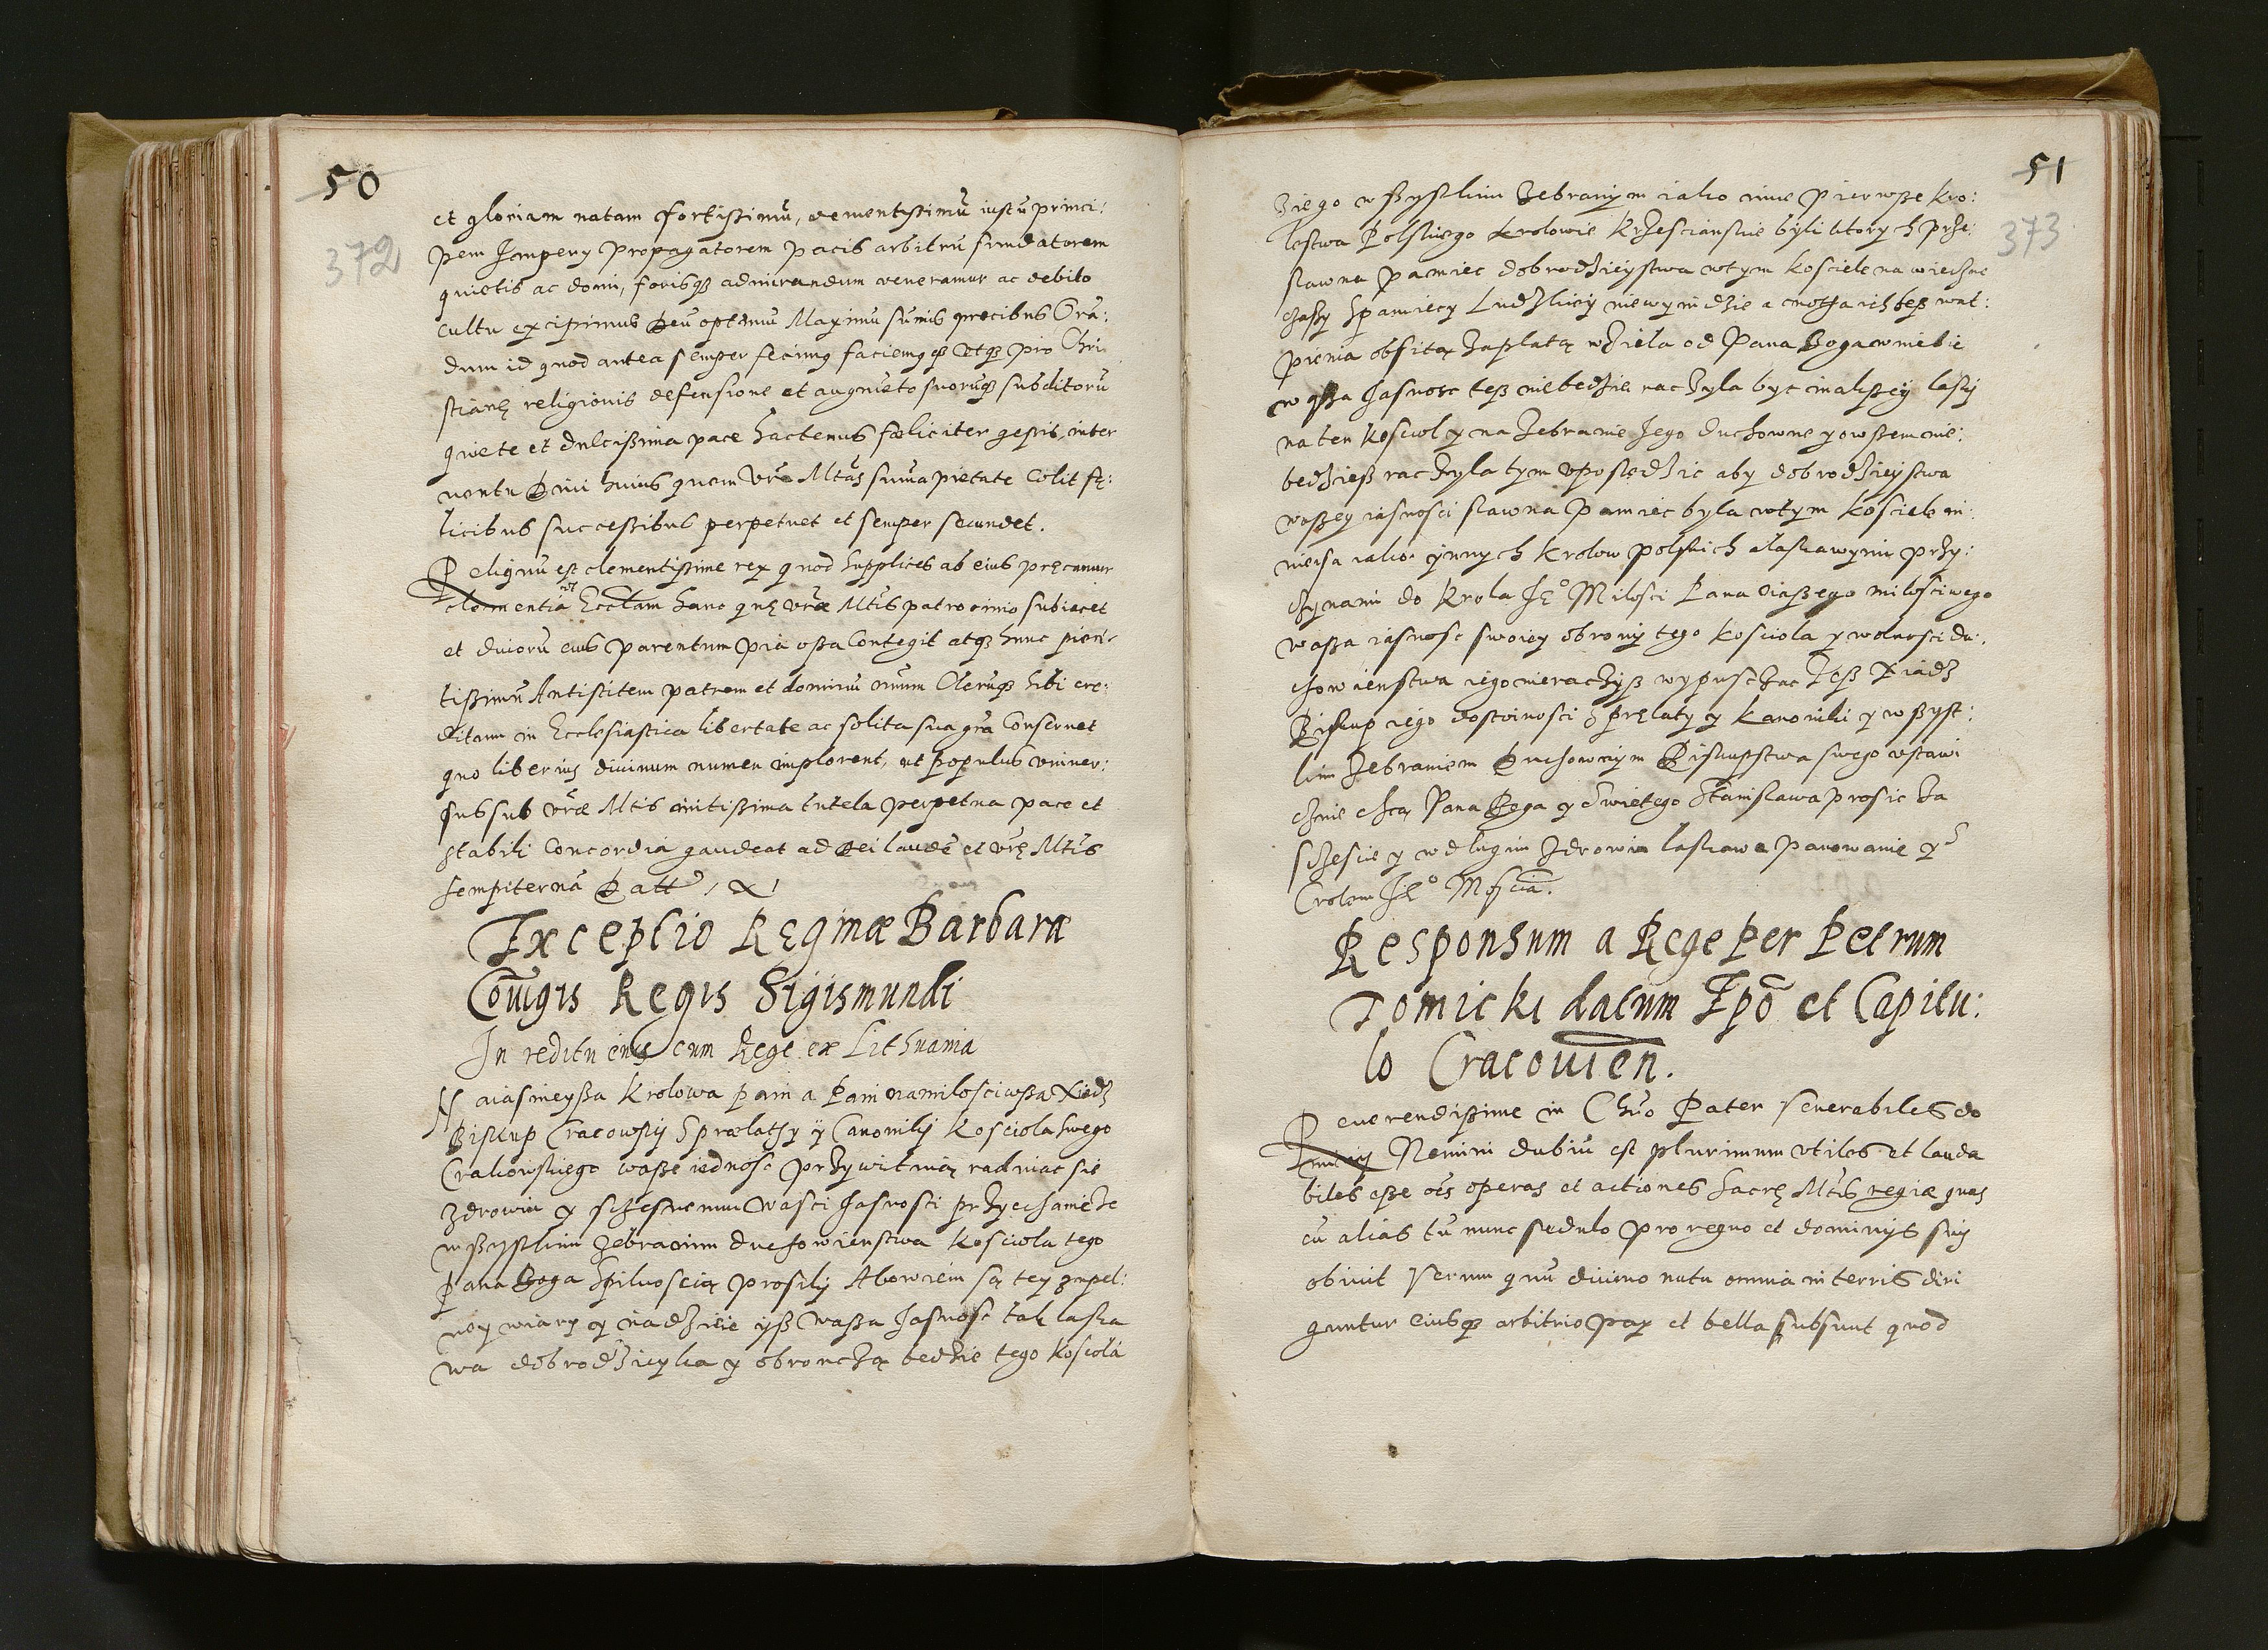 50
372
et gloriam natam fortissimū, clementissimū iustū princi:
pem Imperij propagatorem pacis arbitrū fundatorem
quietis ac domi, forisqȝ admirandum veneramur ac debito
cultu excipimus Deū optimū Maximū sumis precibus Ora:
dum id quod antea semper fecimꝯ faciemꝯqȝ utqȝ pro Chri
stianę religionis defensione et augmēto suorūqȝ subditorū
quiete et dulcissima pace hactenus fœliciter gessit, inter
ventu Divi huius quem Vrā Mtas suma pietate Colit fę:
licibus successibus perpetuet et semper secundet.
Reliquū est clementissime rex quod supplices ab eius pręcamur
clementia ut Eccłam hanc quę vrāe Mtis patrocinio subiacet
et divorū eius parentum pia ossa Contegit atqȝ hunc pien:
tissimū Antistitem patrem et dominū nrum Clerūqȝ sibi cre:
ditum in Ecclesiastica libertate ac solita sua gra Conservet
quo liberius divinum numen implorent, ut populus univer:
sus sub vrāe Mtis mitissima tutela perpetua pace et
stabili Concordia gaudeat ad Dei laudē et vrę Mtis
sempiternā
Exceptio Reginæ Barbaræ
Cōiugis Regis Sigismundi
In reditu eius cum Rege ex Lithuania
Naiasnieyßa Krolowa pani a Pani namilosciwßa Xiedz
Biskup Cracowsky S prælathy ÿ Canoniky Kosciola swego
Crakowskiego waße iednosc przywitaią raduiac sie
zdrowiu y sczesnemu Wasci Jasnosci przyechanie ze
wßystkim Zebranim duchowienstwa Kosciola tego
Pana Boga Spilnoscią prosily Abowiem są tey zupel:
ney wiary y nadzieie yß Waßa Jasnosc tak laska
wa dobrodzieyka y obronczą bedzie tego Kosciola
51
373
Ziego wßystkim Zebranym iako inne Pierwße Kro:
lestwa Polskiego Krolowie Krzescianskie byli ktorych prze:
slawna pamiec dobrodzieystwa wtym Kosciele na wieczne
czaßy Spamiecy Ludzkiey niewynidzie a cnotha ich beß wat:
pienia obfitą Zaplatą wziela od Pana Boga wniebie
waßa Jasnosc teß niebedzie raczyla byc malßey lasky
na ten Kosciol y na Zebranie Jego duchowne y owßem nie:
bedzieß raczyla tym uposledzic aby dobrodzieystwa
waßey iasnosci slawna Pamiec byla wtym Kosciele m
nieisa iako ynnych Krolow polskich a laskawymi przy:
czynami do Krola Je° Milosci Pana naßego milosciwego
waßa iasnosc swoiey obrony tego Kosciola y wolnosci du:
chowienstwa iego nieraczyß wypusczac Teß Xiadz
Biskup iego dostoinosci S pręlaty y Kanoniki y wßyst:
kim Zebraniem Duchownym Biskupstwa swego ustawi
cznie chcą Pana Boga y Swietego Stanislawa prosic Za
sczescie y wdlugim Zdrowiu laskawe panowanie y S
Crolem Je° Mością.
Responsum a Rege per Petrum
Tomicki datum Epō et Capitu:
lo Cracovien̄.
Reverendissime in Chrō Pater Venerabiles do
mini Nemini dubiū est plurimum utiles et lauda
biles esse oēs operas et actiones Sacrę Mtis regiæ quas
cū alias tū nunc sedulo pro regno et dominijs suis
obivit Verum quū divino nutu omnia in terris diri
guntur eiusqȝ arbitrio pax et bella subsunt quod